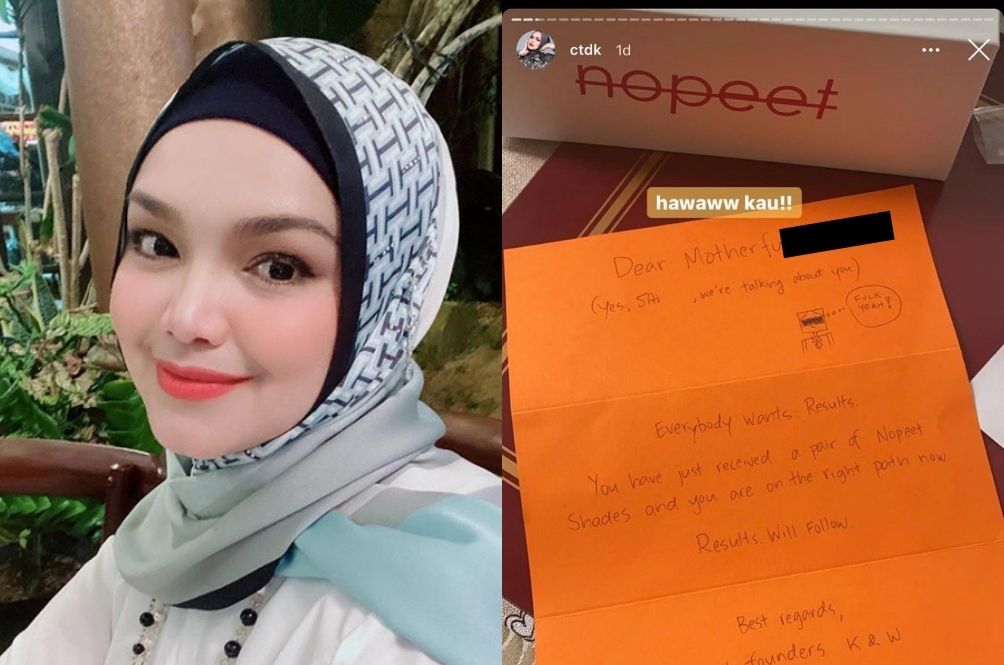 ctdk 1d
nopeet
hawaww kau!!
Dear Motherfu
(Yes, Siti , we're talking about you)
FUCK
YEAH!
Everybody Wants Results.
You have just received a pair of Nopeet
Shades and you are on the right path now.
Results. Will Follow.
Best regards,
founders K & W